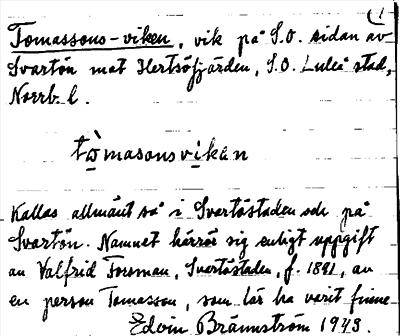 (1
Tomassons-viken, vik på S.O. sidan av
Svartön mot Hertsöfjärden, S.O. Luleå stad,
Norrb. l.
tò̱masonsvi̱kan
Kallas allmänt så i Svartöstaden och på
Svartön. Namnet härrör sig enligt uppgift
av Valfrid Forsman, Svartöstaden, f. 1881, av
en person Tomasson, som lär ha varit finne
Edvin Brännström 1943.